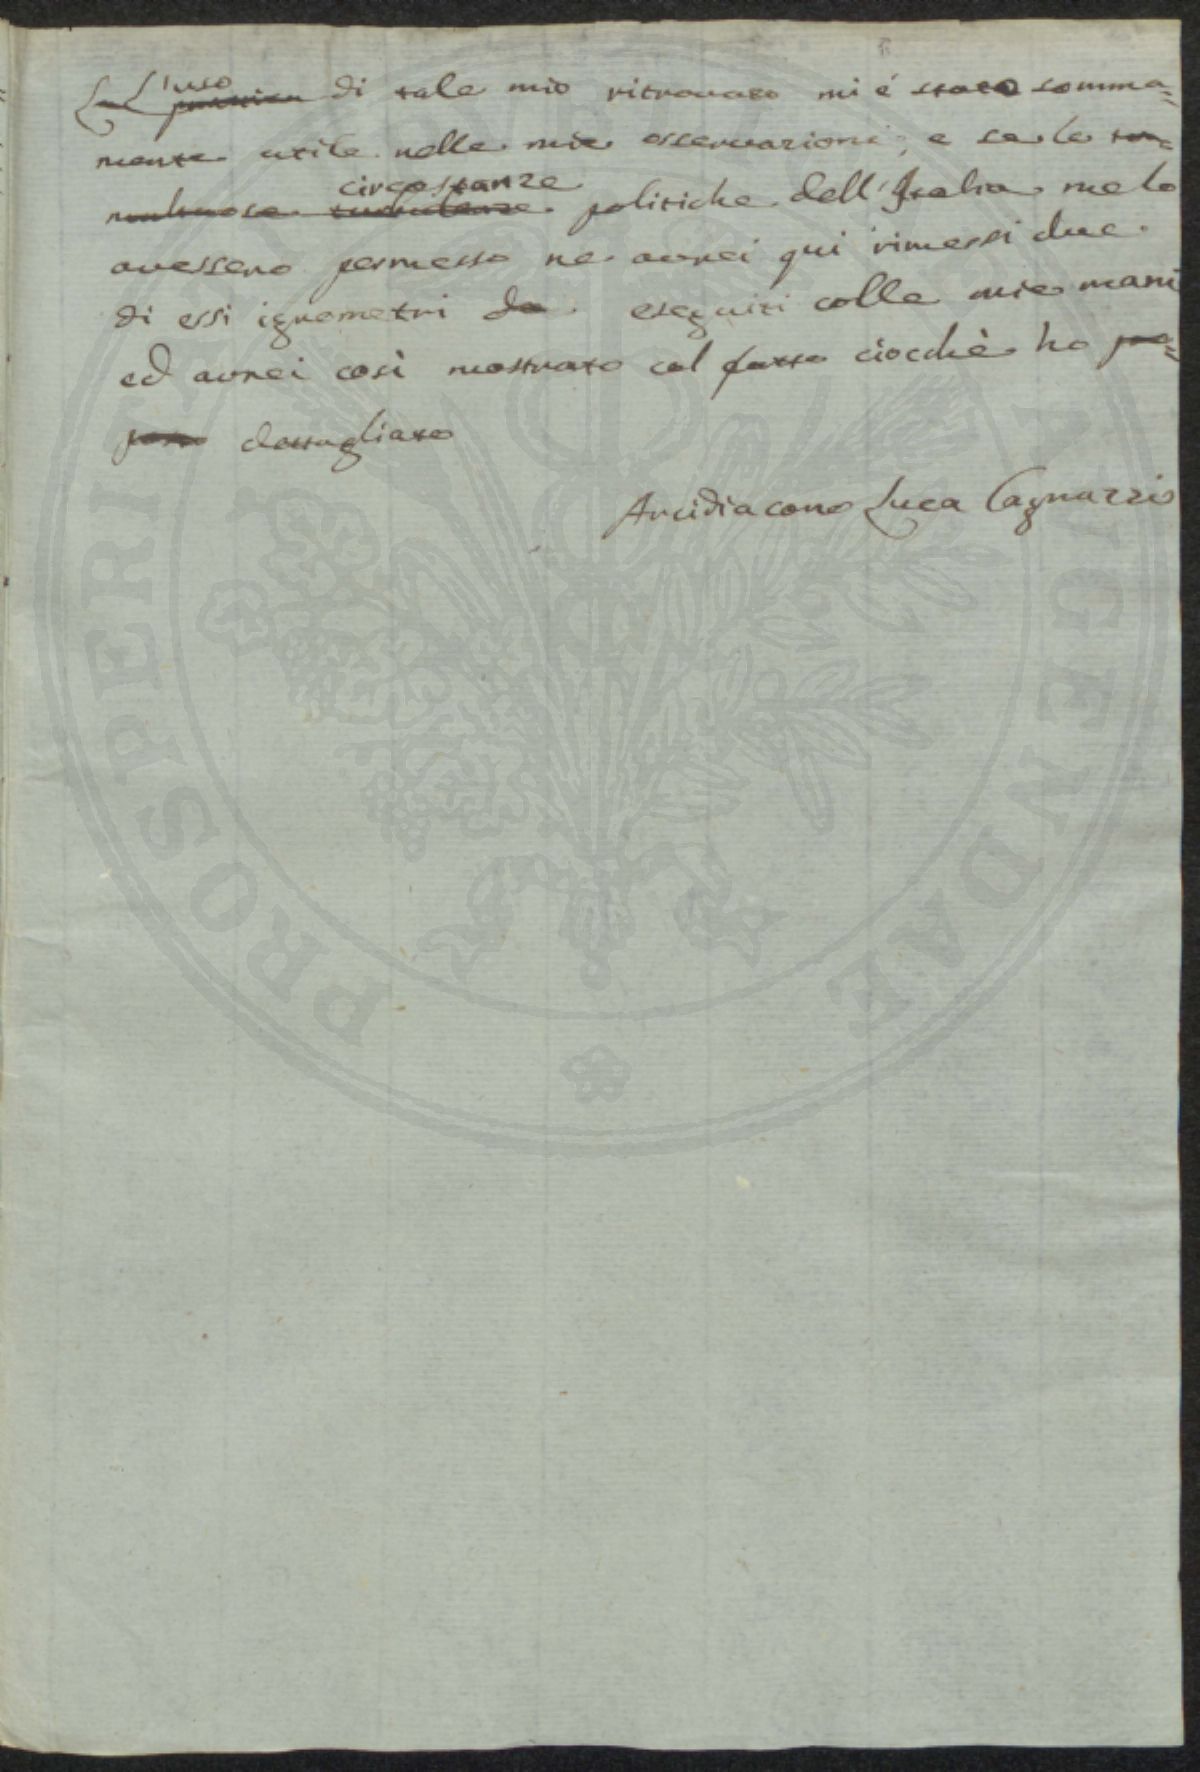 L'uso
La pratica di tale mio ritrovato mi é stato somma=
mente utile nelle mie osservazioni, e se le tu=
circostanze
multuose turbolenze politiche dell'Italia me lo
avessero permesso ne avrei qui rimessi due
di essi igrometri da eseguiti colle mie mani
ed avrei così mostrato col fatto ciocchè ho
dettagliato
Arcidiacono Luca Cagnazzi
PROSPERITATI PUBLICAE AUGENDAE